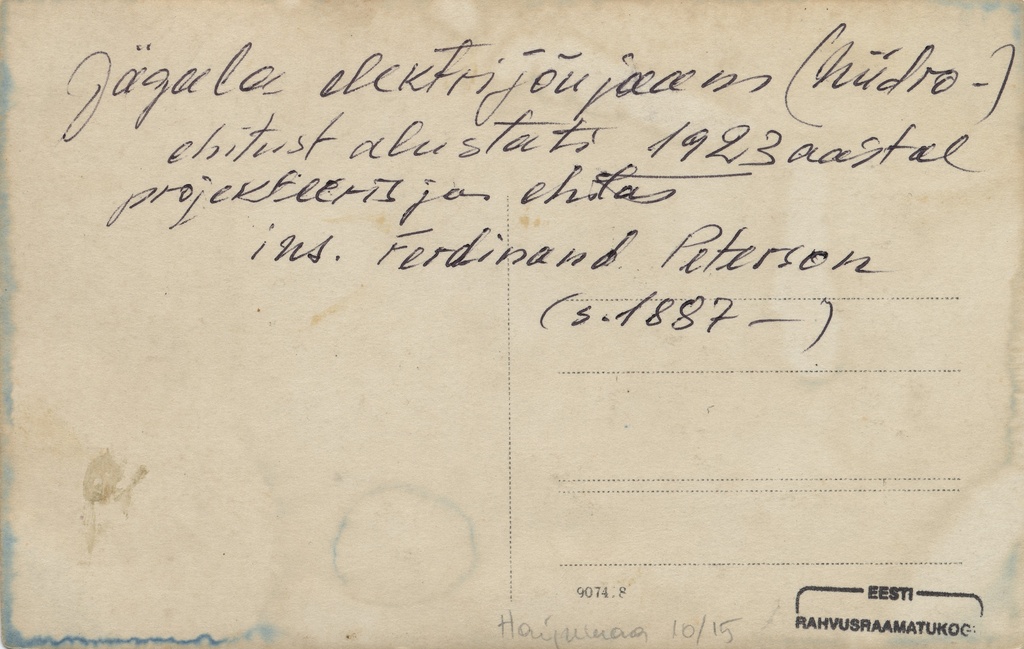 Jägala elektrijõujaam (hüdro-)
ehitust alustati 1923 aastal
projekteeris ja ehitas
ins. Ferdinand Peterson
(s. 1887 — )
9074.8
Harjumaa 10/15
EESTI
RAHVUSRAAMATUKOG